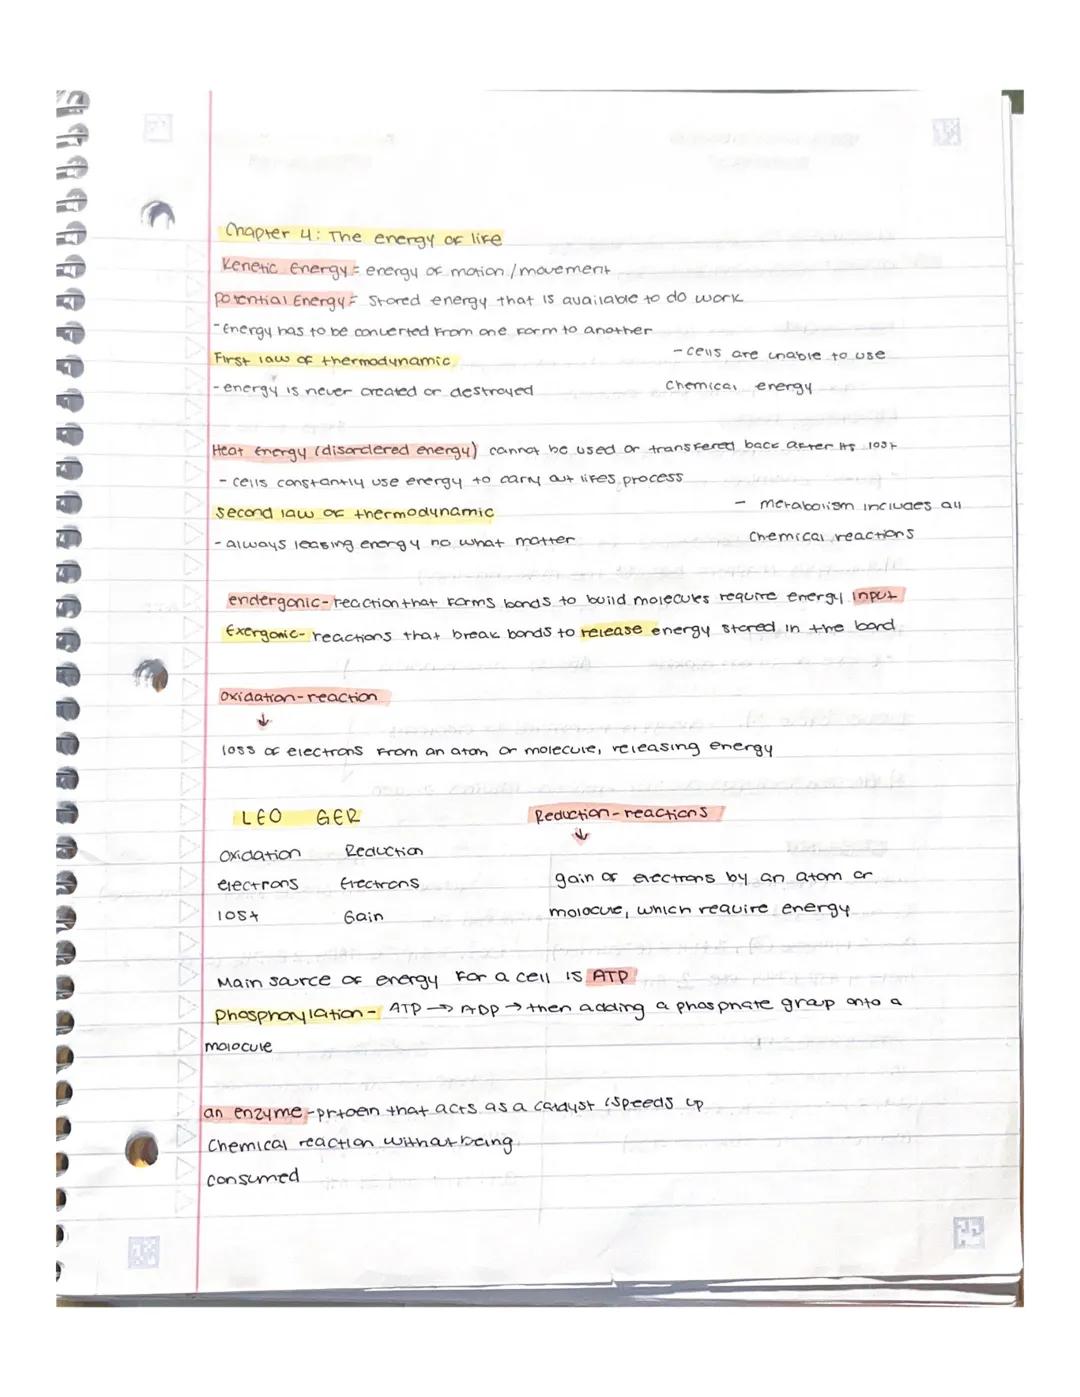 Chapter 4: The energy of life
Kenetic Energy = energy of motion / movement
Potential Energy = Stored energy that is available to do work
- Energy has to be converted from one form to another
First law of thermodynamic
- cells are unable to use
- energy is never created or destroyed
Chemical energy
Heat energy (disordered energy) cannot be used or transfered back after its lost
- cells constantly use energy to carry out lifes process
Second law of thermodynamic
- metabolism includes all
- always leasing energy no what matter
Chemical reactions
endergonic- reaction that forms bonds to build molecules require energy input
Exergonic- reactions that break bonds to release energy stored in the bond
Oxidation-reaction
↓
loss of electrons from an atom or molecule, releasing energy
LEO GER
Reduction-reactions
↓
Oxidation Reduction
electrons Electrons
gain of electrons by an atom or
lost Gain
molocule, which require energy
Main source of energy for a cell is ATP
phosphorylation- ATP → ADP → then adding a phosphate group onto a
molocule
an enzyme -prtoein that acts as a catalyst (speeds up
Chemical reaction without being
consumed